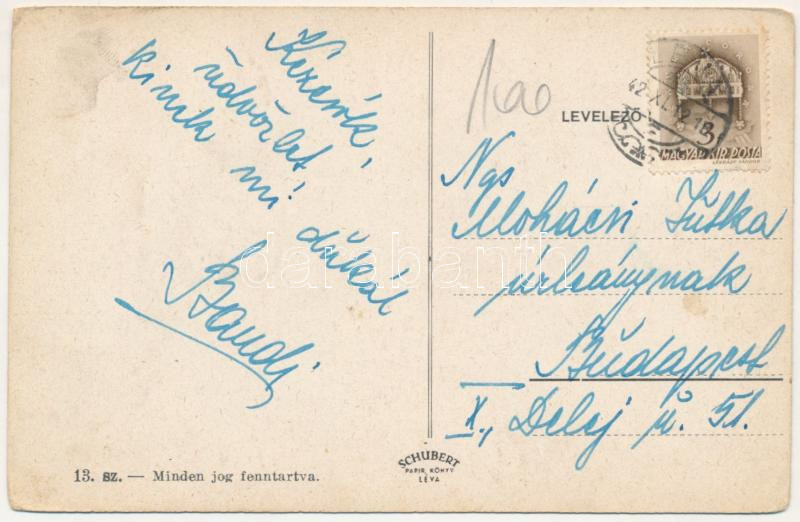 Kezenók,
üdvözlet
kinek mi dukál!
Bandi
1000
LEVELEZŐ
42. XI. 12. 18
MAGYAR KIR. POSTA
Ngs
Mohácsi Jutka
úrleánynak
Budapest
X., Delej u. 51.
13. sz. — Minden jog fenntartva.
SCHUBERT
PAPIR, KÖNYV
LÉVA
darabanth